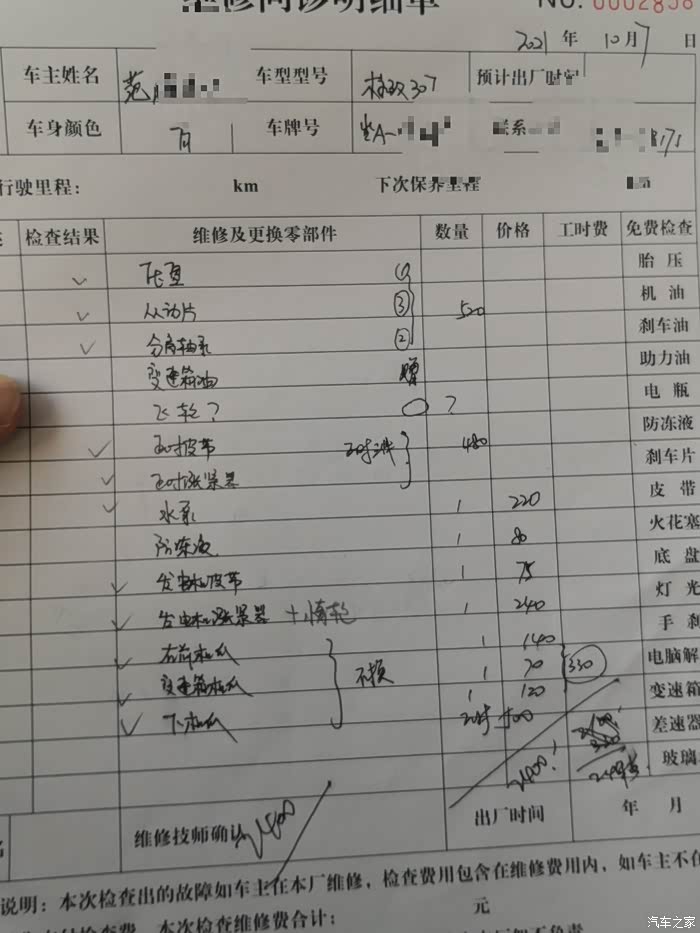 维修问诊明细单 NO. 0002858
2021 年 10 月 7 日
车主姓名 范 车型型号 标致307 预计出厂时间
车身颜色 车牌号 A- 联系
行驶里程: km 下次保养里程
检查结果 维修及更换零部件 数量 价格 工时费 免费检查
压盘 胎压
从动片 ③ 520 机油
分离轴承 ② 刹车油
变速箱油 赠 助力油
飞轮? ? 电瓶
正时皮带 正时三件 480 防冻液
正时涨紧器 刹车片
水泵 1 220 皮带
防冻液 1 80 火花塞
发电机皮带 1 75 底盘
发电机涨紧器 +惰轮 1 240 灯光
右前机爪 1 140 手刹
变速箱机爪 不换 1 70 330 电脑解
下机爪 1 120 变速箱
差速器
2400! 玻璃
维修技师确认 出厂时间 年 月
说明:本次检查出的故障如车主在本厂维修,检查费用包含在维修费用内,如车主不在
本次检查维修费合计: 元
汽车之家